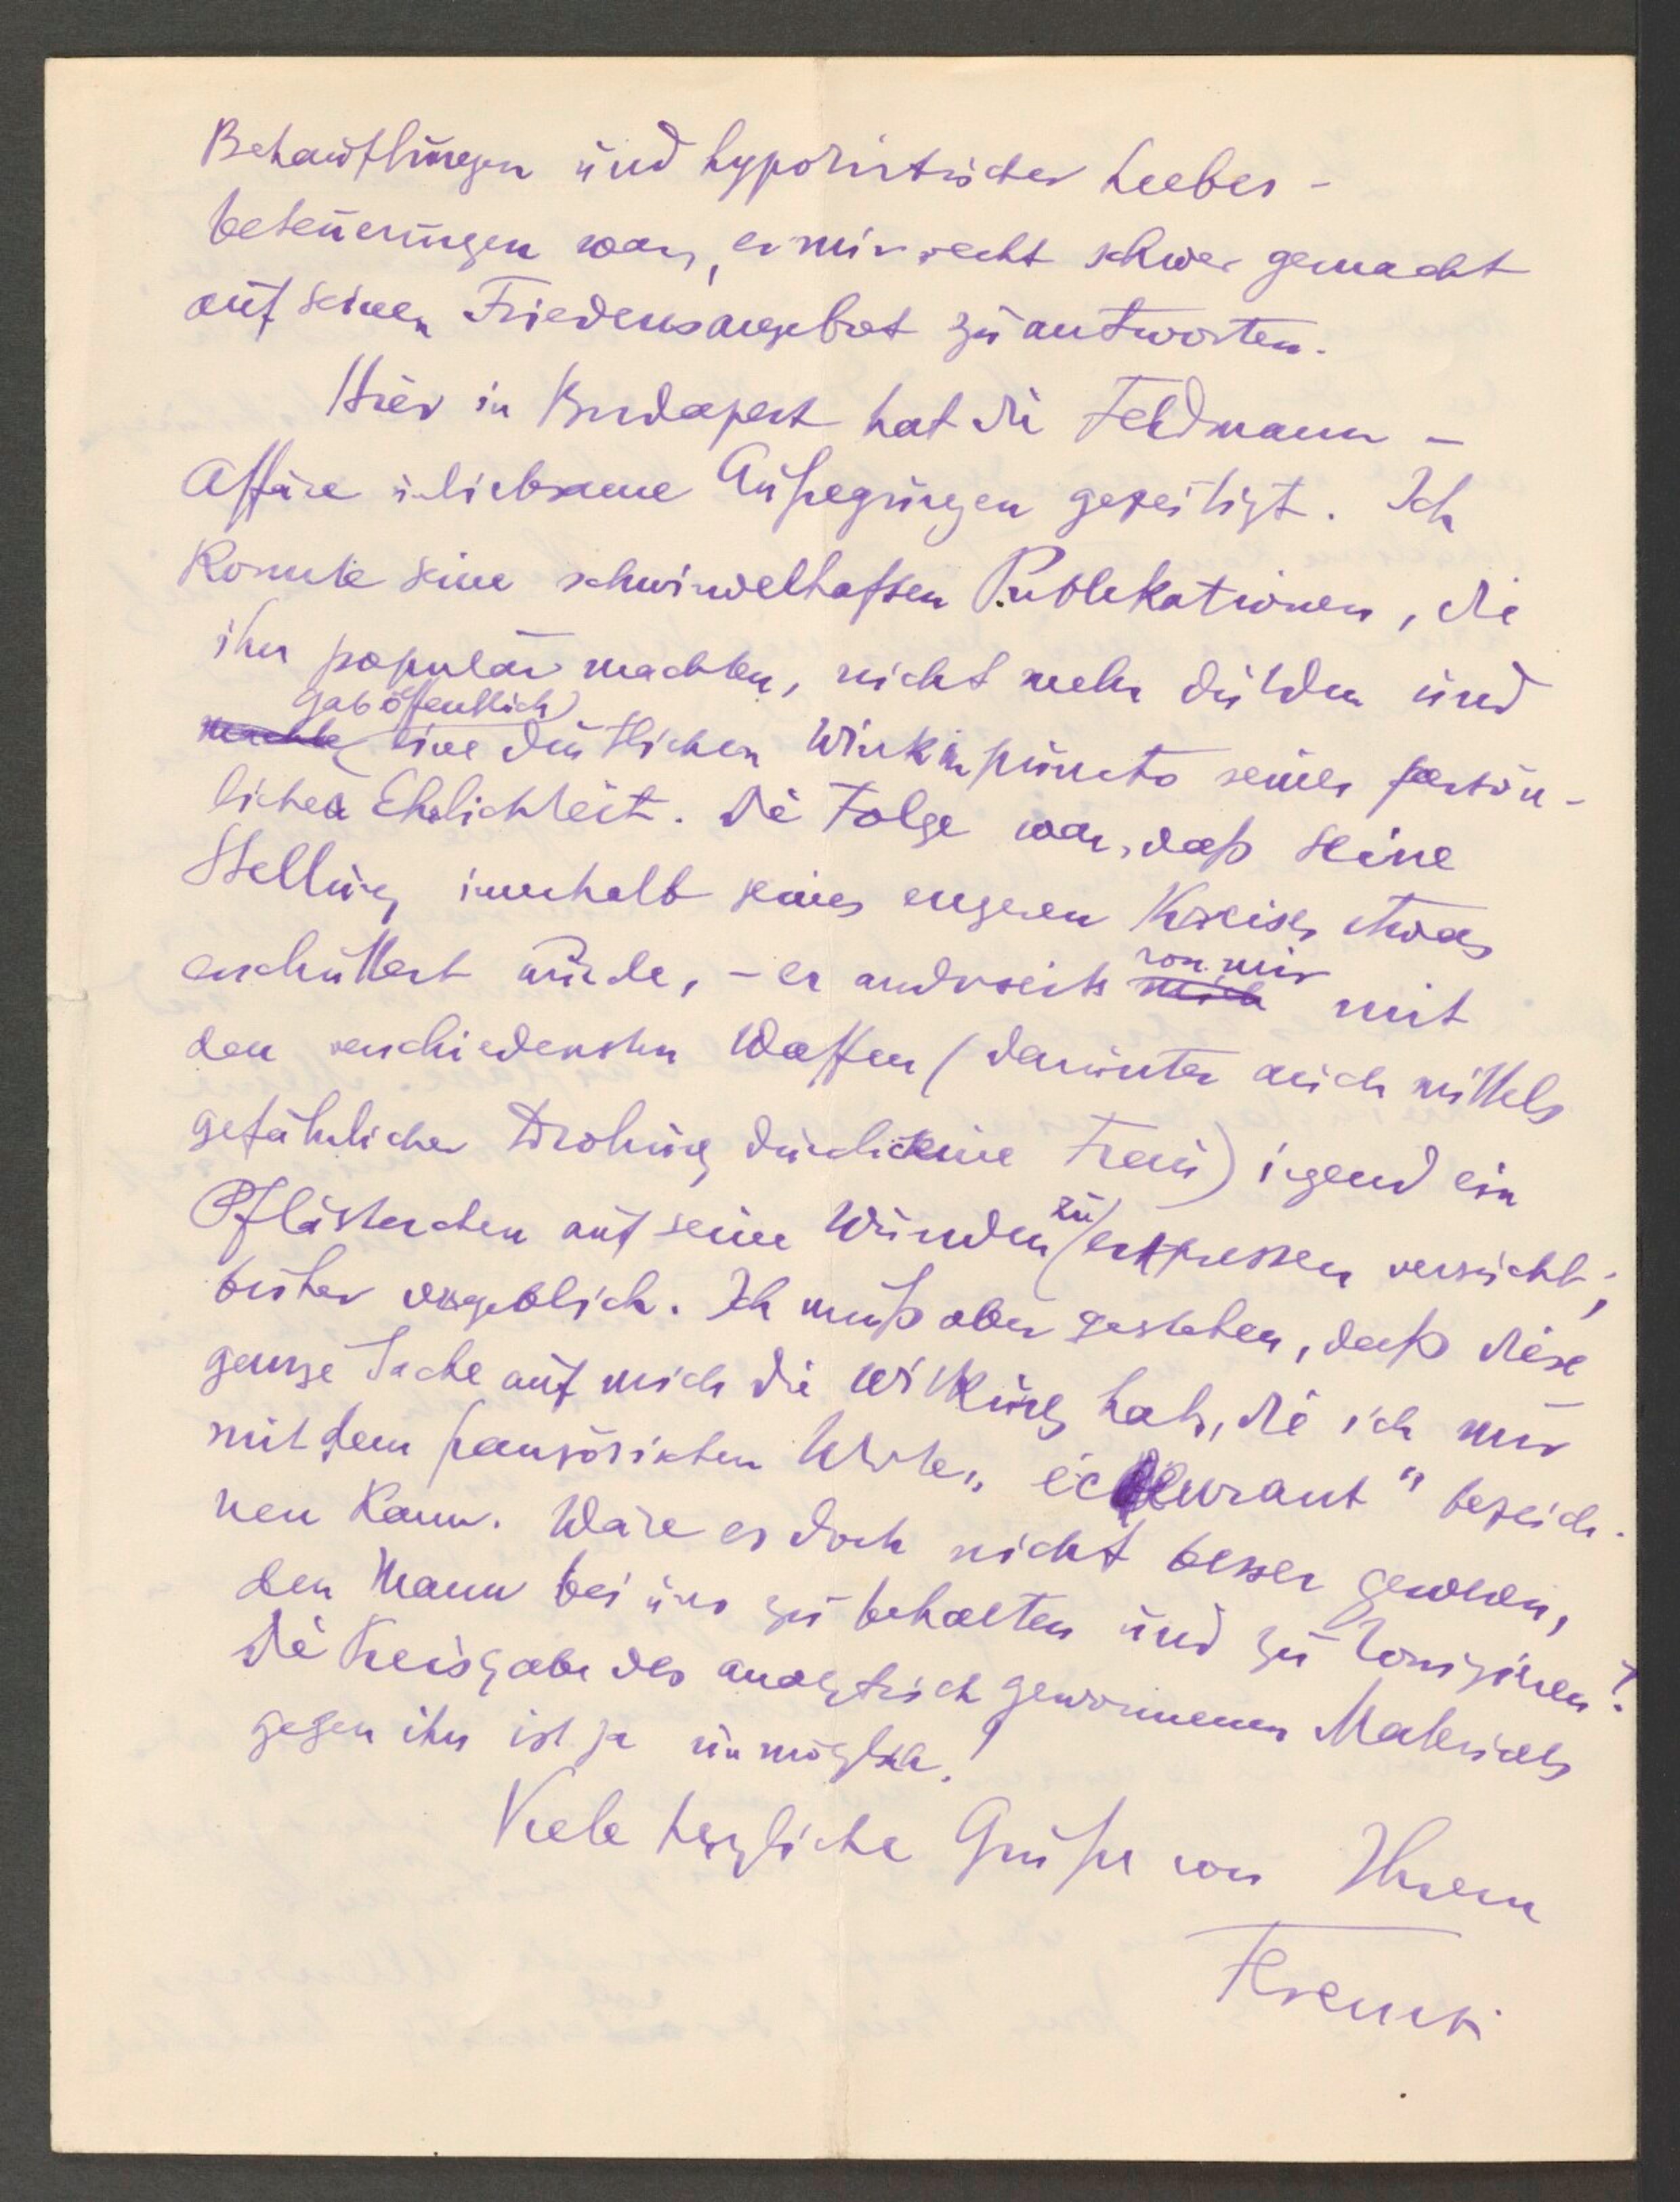 Behauptungen und hypokritischer Liebes-
beteuerungen war, es mir recht schwer gemacht
auf seinen Friedensangebot zu antworten.
Hier in Budapest hat die Feldmann-
Affäre unliebsame Aufregungen gezeitigt. Ich
konnte seine schwindelhaften Publikationen, die
ihn populär machten, nicht mehr dulden und
gab öffentlich
machte eine deutlichen Wink in puncto seiner persön-
lichen Ehrlichkeit. Die Folge war, daß seine
Stellung innerhalb seines engeren Kreises etwas
erschüttert wurde, - er andrseits
von mir
mich mit
den verschiedensten Waffen (darunter auch mittels
gefährlicher Drohung durch seine Frau) irgend ein
Pflästerchen auf seine Wunden zu erpressen versucht;
bisher vergeblich. Ich muß aber gestehen, daß diese
ganze Sache auf mich die Wirkung hat, die ich nur
mit dem französischen Worte „écoeurant" bezeich-
nen kann. Wäre es doch nicht besser gewesen,
den Mann bei uns zu behalten und zu korrigieren?
Die Preisgabe des analytisch gewonnenen Materials
gegen ihn ist ja unmöglich!
Viele herzliche Grüße von Ihrem
Ferenczi